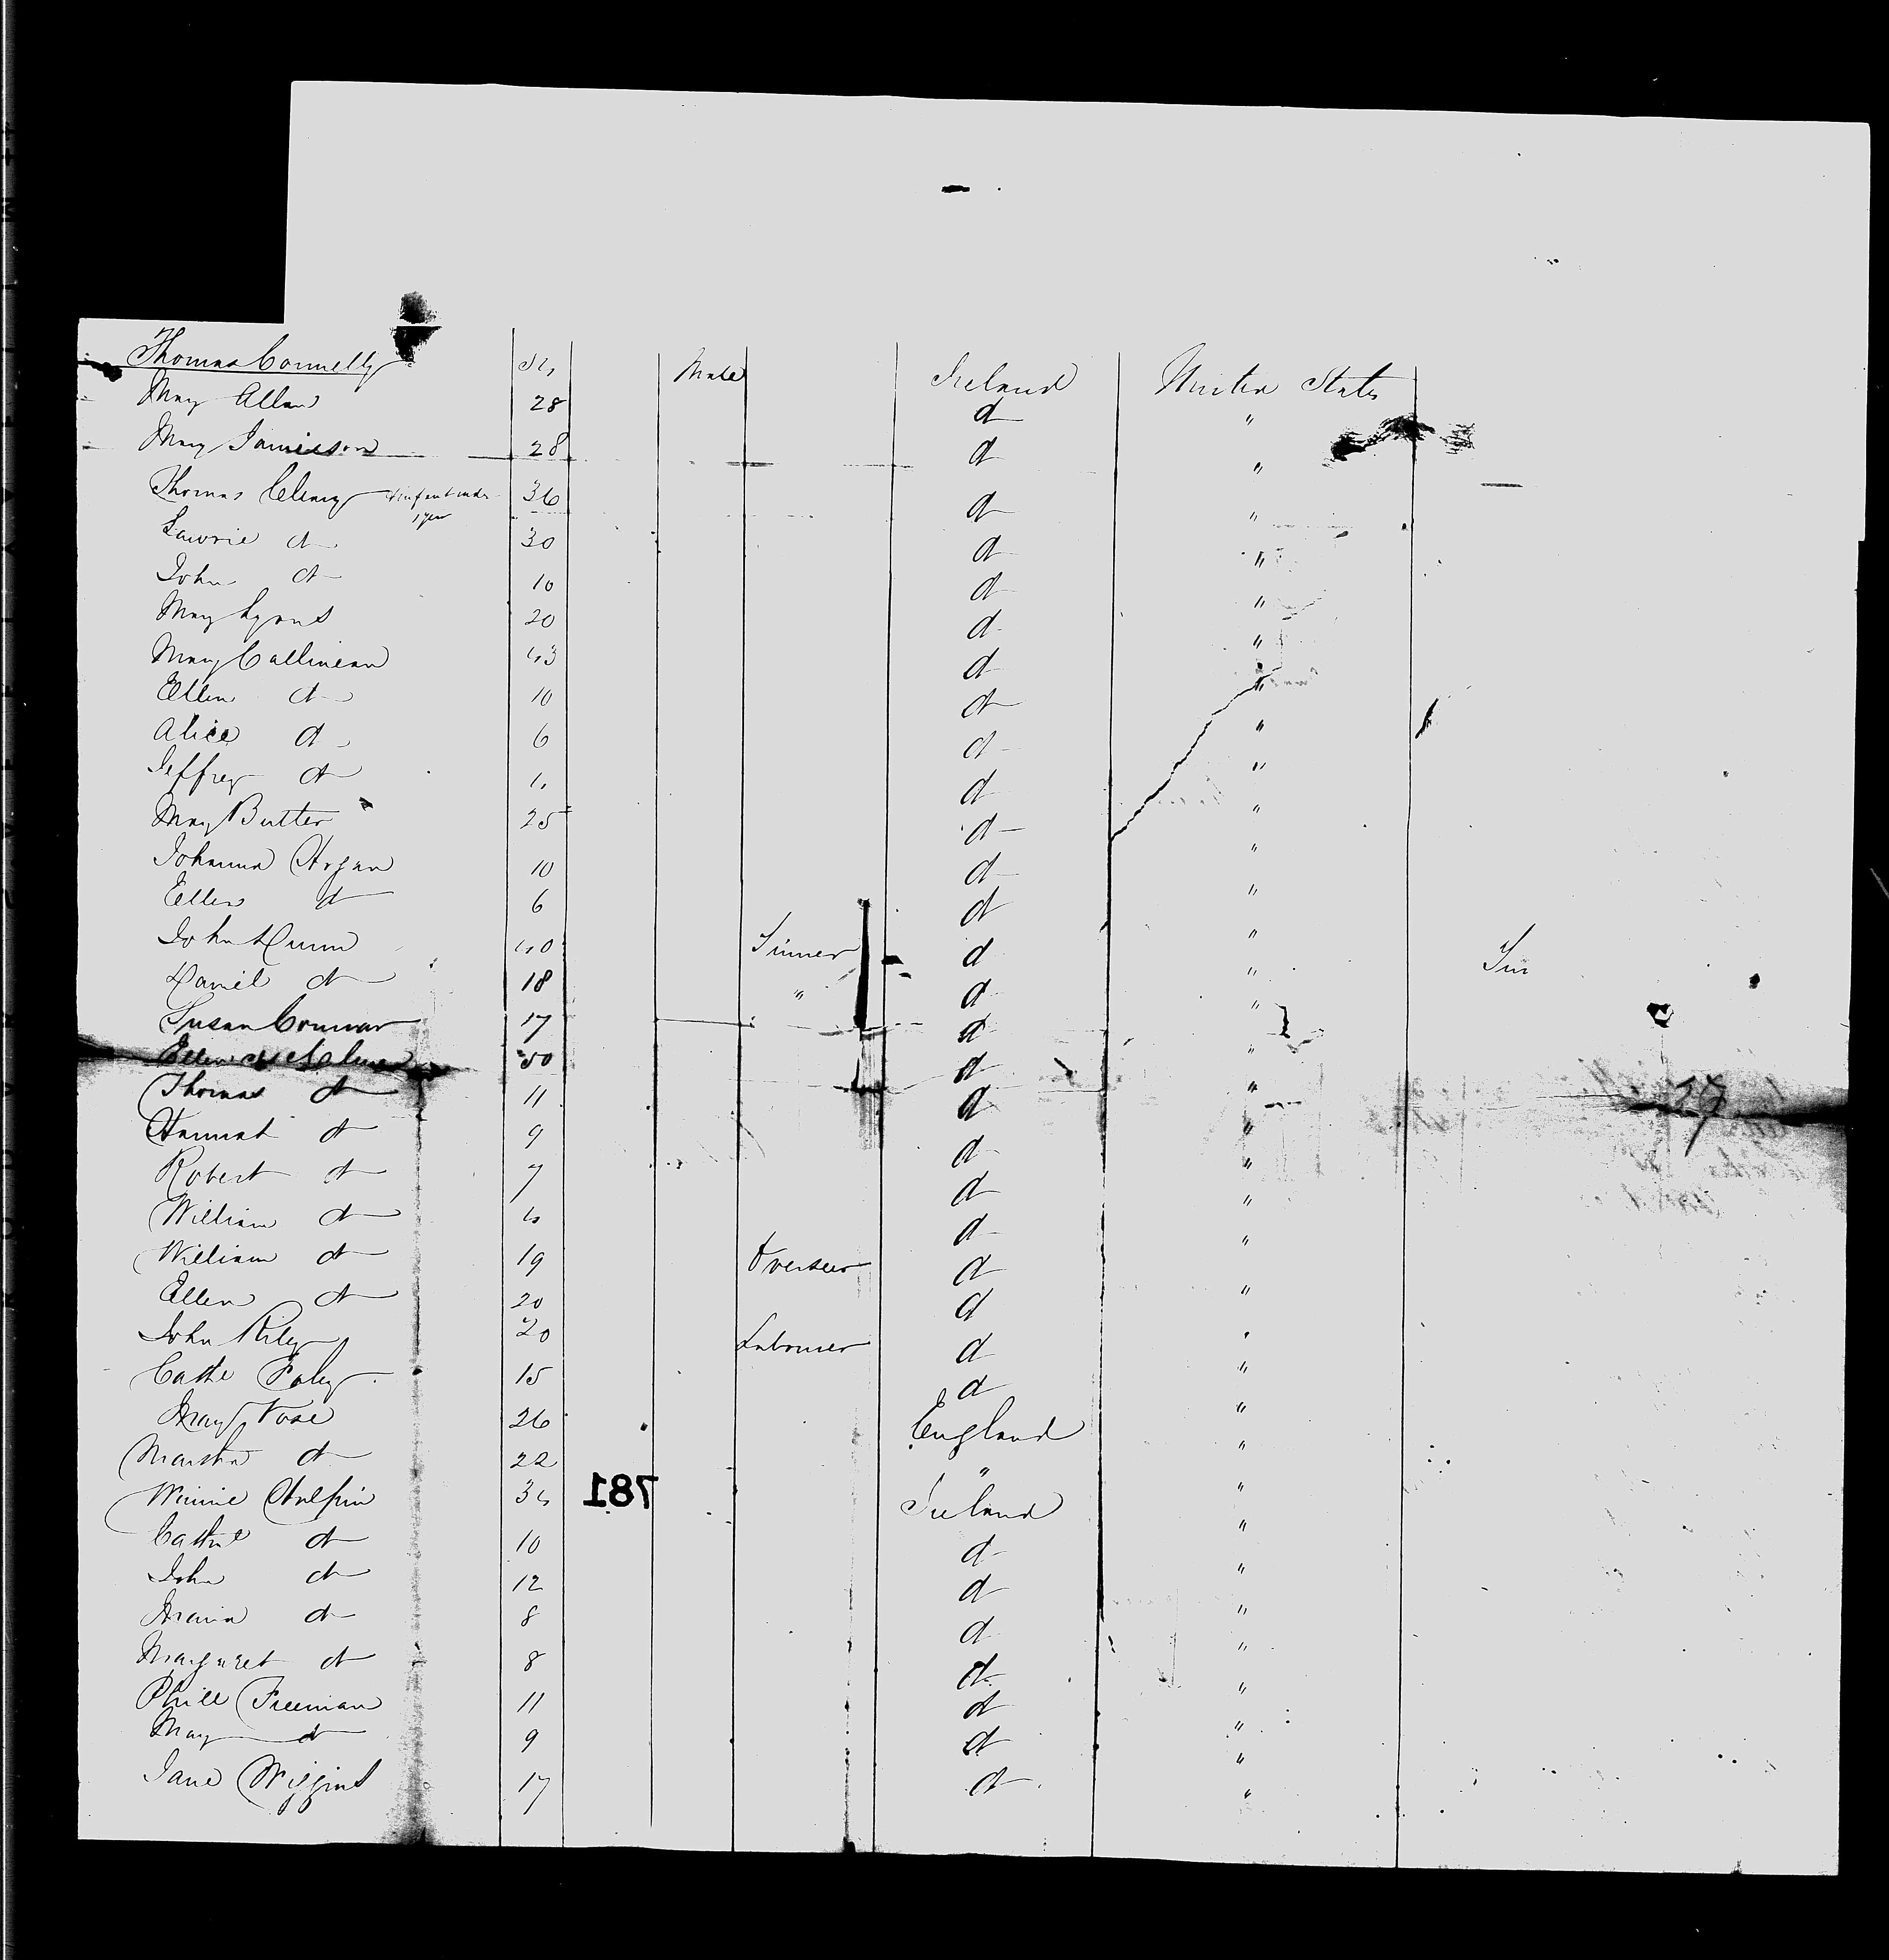 Thomas Connelly 24 Male Ireland United States
Mary Allen 28 d "
Mary Jamieson 28 d "
Thomas Cleary & infant under 1 year 36 d "
Lawrie d 30 d "
John d 10 d "
Mary Lyons 20 d "
Mary Callinean 43 d "
Ellen d 10 d "
Alice d 6 d "
Jeffrey d 4 d "
Mary Butler 25 d "
Johanna Hogan 10 d "
Ellen d 6 d "
John Dunn 40 d "
Daniel d 18 " d "
Susan 17 d "
Ellen 50 d "
Thomas d 11 d "
Hannah d 9 d "
Robert d 7 d "
William d 4 d "
William d 19 Overseer d "
Ellen d 20 d "
John Riley 20 Labourer d "
Cathe Foley 15 d "
Mary Vose 26 England "
Martha d 22 " "
Winnie Halpin 34 Ireland "
Cathe d 10 d "
John d 12 d "
Maria d 8 d "
Margaret d 8 d "
Phill Freeman 11 d "
Mary d 9 d "
Jane Wiggins 17 d "
781